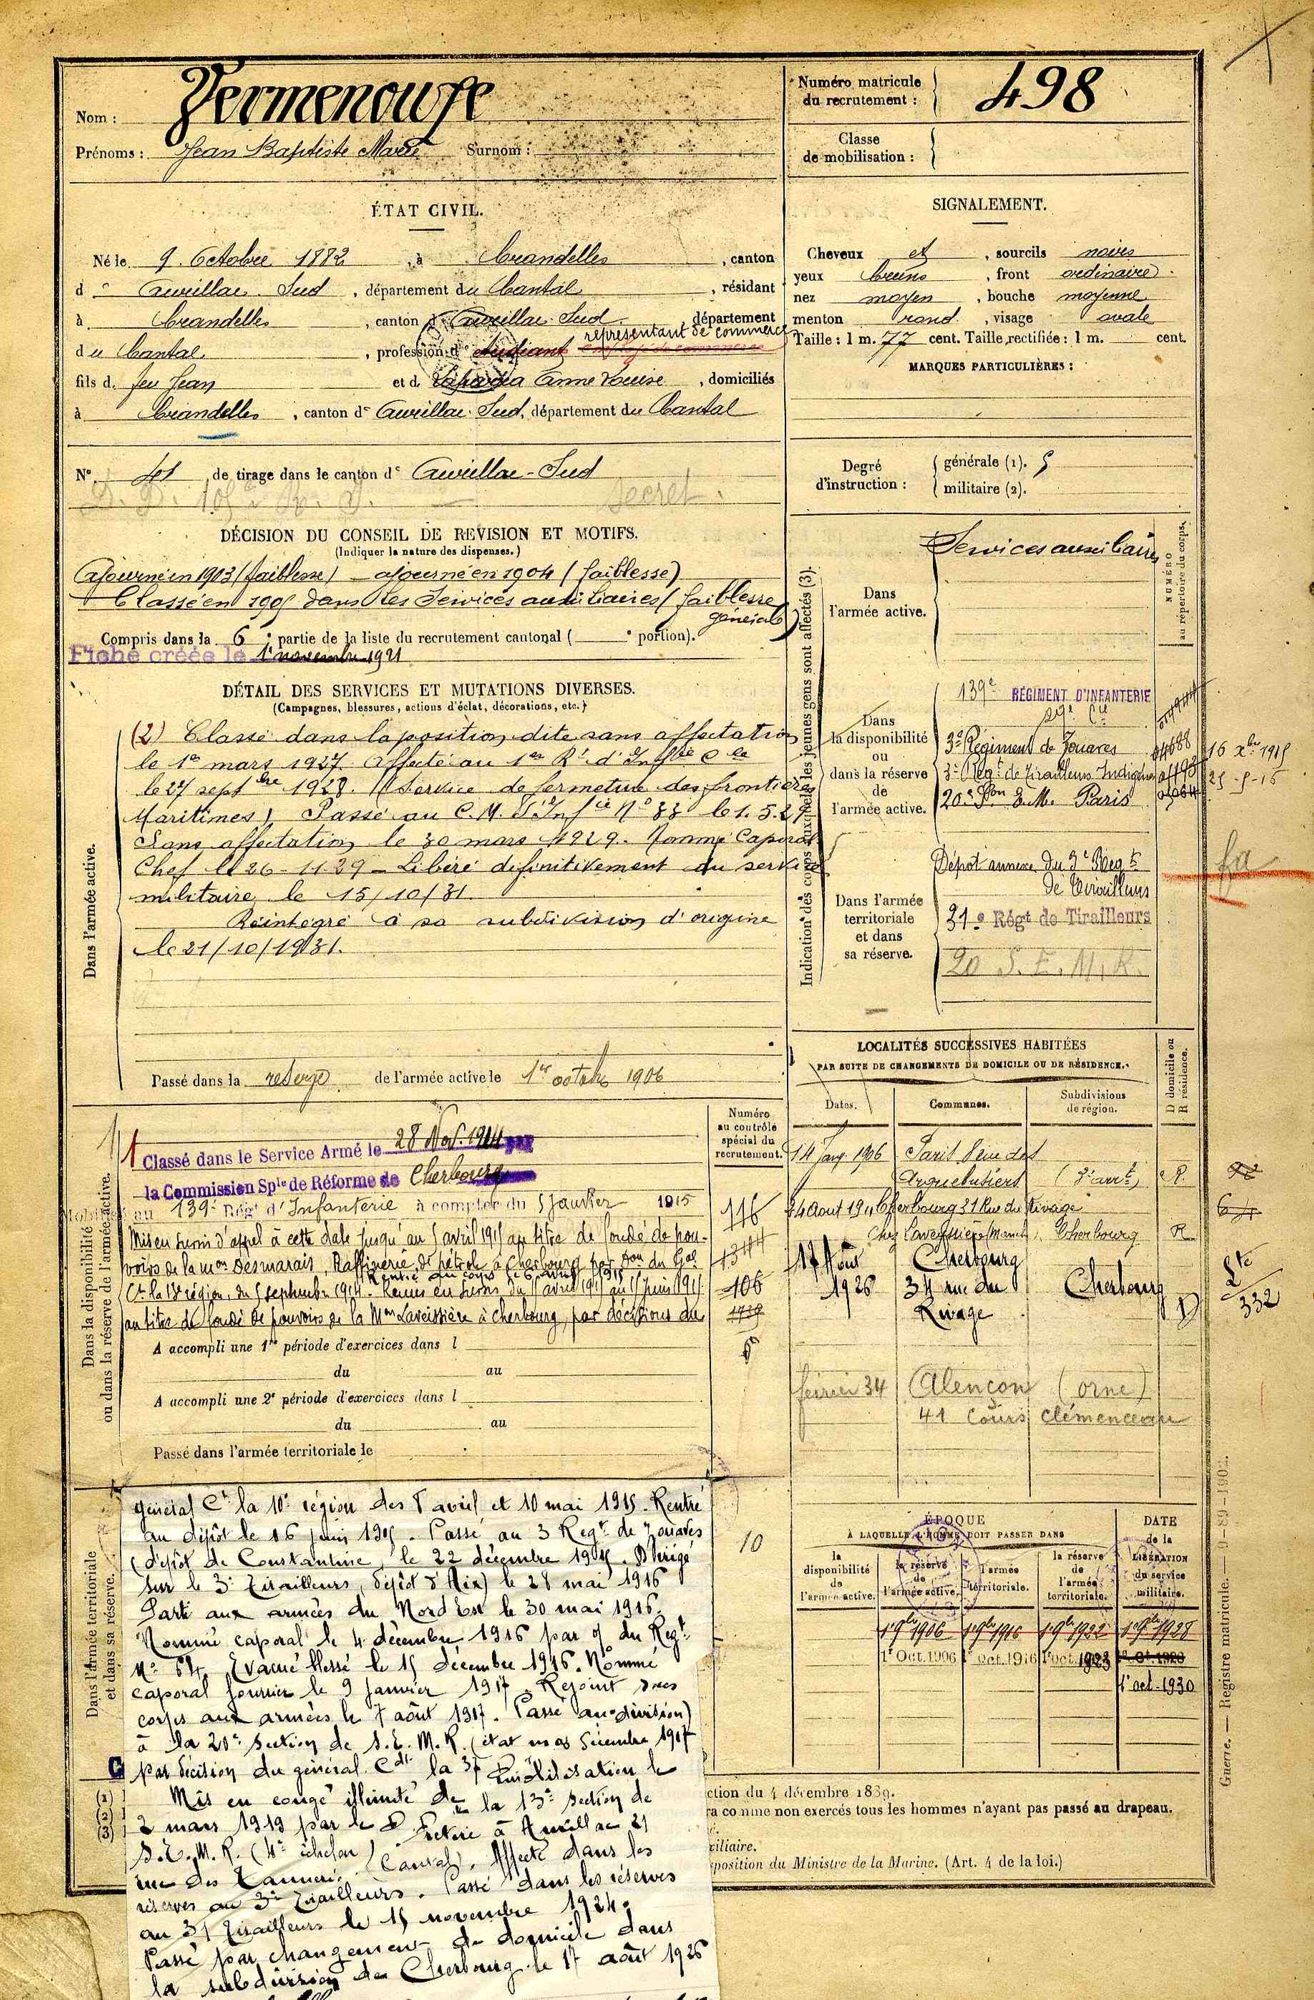 Nom : Vermenouze
Prénoms : Jean Baptiste Marie Surnom :
Numéro matricule du recrutement : 498
Classe de mobilisation :
ÉTAT CIVIL.
Né le 9 Octobre 1882, à Crandelles, canton
d Aurillac Sud, département du Cantal, résidant
à Crandelles, canton d Aurillac Sud, département
du Cantal, profession d étudiant employé de commerce représentant de commerce
fils d feu Jean et d Anne Louise, domiciliés
à Crandelles, canton d Aurillac Sud, département du Cantal
N° 41 de tirage dans le canton d Aurillac-Sud
secret.
SIGNALEMENT.
Cheveux et, sourcils noirs
yeux bruns, front ordinaire
nez moyen, bouche moyenne
menton rond, visage ovale
Taille : 1 m. 77 cent. Taille rectifiée : 1 m. cent.
MARQUES PARTICULIÈRES :
Degré d'instruction :
générale (1).
militaire (2).
DÉCISION DU CONSEIL DE REVISION ET MOTIFS.
(Indiquer la nature des dispenses.)
Ajourné en 1903 (faiblesse) – ajourné en 1904 (faiblesse)
Classé en 1905 dans les Services auxiliaires (faiblesse
générale)
Compris dans la 6e partie de la liste du recrutement cantonal ( e portion).
Fiche créée le 1 novembre 1921
DÉTAIL DES SERVICES ET MUTATIONS DIVERSES.
(Campagnes, blessures, actions d'éclat, décorations, etc.)
Dans l'armée active.
(2) Classé dans la position dite sans affectation
le 1er mars 1927. Affecté au 1er Rt d'Infrie Cle
le 27 septbre 1928. (Service de fermeture des frontières
Maritimes) Passé au C. M. d'Infie N° 33 le 1.5.29
Sans affectation le 30 mars 1929. Nommé Caporal
Chef le 26-11-29 – Libéré définitivement du service
militaire le 15/10/31.
Réintégré à sa subdivision d'origine
le 21/10/1931.
Passé dans la reserve de l'armée active le 1er octobre 1906
Indication des corps auxquels les jeunes gens sont affectés (3).
NUMÉRO au répertoire du corps.
Dans l'armée active.
Services auxiliaires
Dans la disponibilité ou dans la réserve de l'armée active.
139e RÉGIMENT D'INFANTERIE
3e Régiment de Zouaves
16 Xbre 1915
3e Régt de Tirailleurs Indigènes
25-5-16
20e Son E.M. Paris
Dans l'armée territoriale et dans sa réserve.
Dépôt annexe du 3e Regt
de Tirailleurs
31e Régt de Tirailleurs
20 S. E. M. R.
fa
LOCALITÉS SUCCESSIVES HABITÉES
PAR SUITE DE CHANGEMENTS DE DOMICILE OU DE RÉSIDENCE.
Dates. Communes. Subdivisions de région. D domicile ou R résidence.
14 Janv 1906 Paris 8 rue des
Arquebusiers (3e arrt) R
24 Aout 1914 Cherbourg 31 Rue du Rivage
Cherbourg R
17 Août Cherbourg
1926 34 rue du Cherbourg D
Rivage
332
février 34 Alençon (orne)
41 Cours Clémenceau
Dans la disponibilité ou dans la réserve de l'armée active.
Numéro au contrôle spécial du recrutement.
Classé dans le Service Armé le 28 Nov. 1914 par
la Commission Sple de Réforme de Cherbourg
Mobilisé au 139e Régt d'Infanterie à compter du 5 Janvier 1915
Mis en sursis d'appel à cette date jusqu'au 1 avril 1915 au titre de fondé de pou-
voirs de la mon Desmarais, Raffinerie de pétrole à Cherbourg par Don du Gal
Rentré au corps le 6 avril 1915
au titre de fondé de pouvoirs de la Mon Laveissière à Cherbourg, par décisions du
116
1344
106
A accompli une 1re période d'exercices dans l
du au
A accompli une 2e période d'exercices dans l
du au
Passé dans l'armée territoriale le
Dans l'armée territoriale et dans sa réserve.
général Ct la 10e région des 8 avril et 10 mai 1915. Rentré
au dépôt le 16 juin 1915. Passé au 3 Regt de Zouaves
(dépôt de Constantine) le 22 décembre 1915. Dirigé
sur le 3e Tirailleurs (dépôt d'Aix) le 28 mai 1916
Parti aux armées du Nord Est le 30 mai 1916.
Nommé caporal le 4 décembre 1916 par o/ du Regt
N° 64. Evacué blessé le 15 décembre 1916. Nommé
caporal fourrier le 9 janvier 1917. Rejoint son
corps aux armées le 7 août 1917. Passé
à la 20e Section de S.E.M.R. décembre 1917
par décision du général Cdt la
Mis en congé illimité de démobilisation le
2 mars 1919 par le D la 13e Section de
S.E.M.R. (4e échelon) Se retire à Aurillac 21
rue des (Cantal). Affecté dans les
réserves au 3e Tirailleurs. Passé dans les réserves
au 31 Tirailleurs le 15 novembre 1924.
Passé par changement de domicile dans
la subdivision de Cherbourg le 17 août 1926
10
ÉPOQUE
À LAQUELLE L'HOMME DOIT PASSER DANS
la disponibilité de l'armée active.
la réserve de l'armée active.
l'armée territoriale.
la réserve de l'armée territoriale.
DATE de la LIBÉRATION du service militaire.
1 9bre 1906 1 9bre 1916 1 9bre 1922 1er 9bre 1928
1er Oct. 1906 1er oct. 1916 1er oct. 1923
1er oct. 1930
(1)
(2)
(3)
ction du 4 décembre 1889.
ra comme non exercés tous les hommes n'ayant pas passé au drapeau.
xiliaire.
position du Ministre de la Marine. (Art. 4 de la loi.)
Guerre. — Registre matricule.